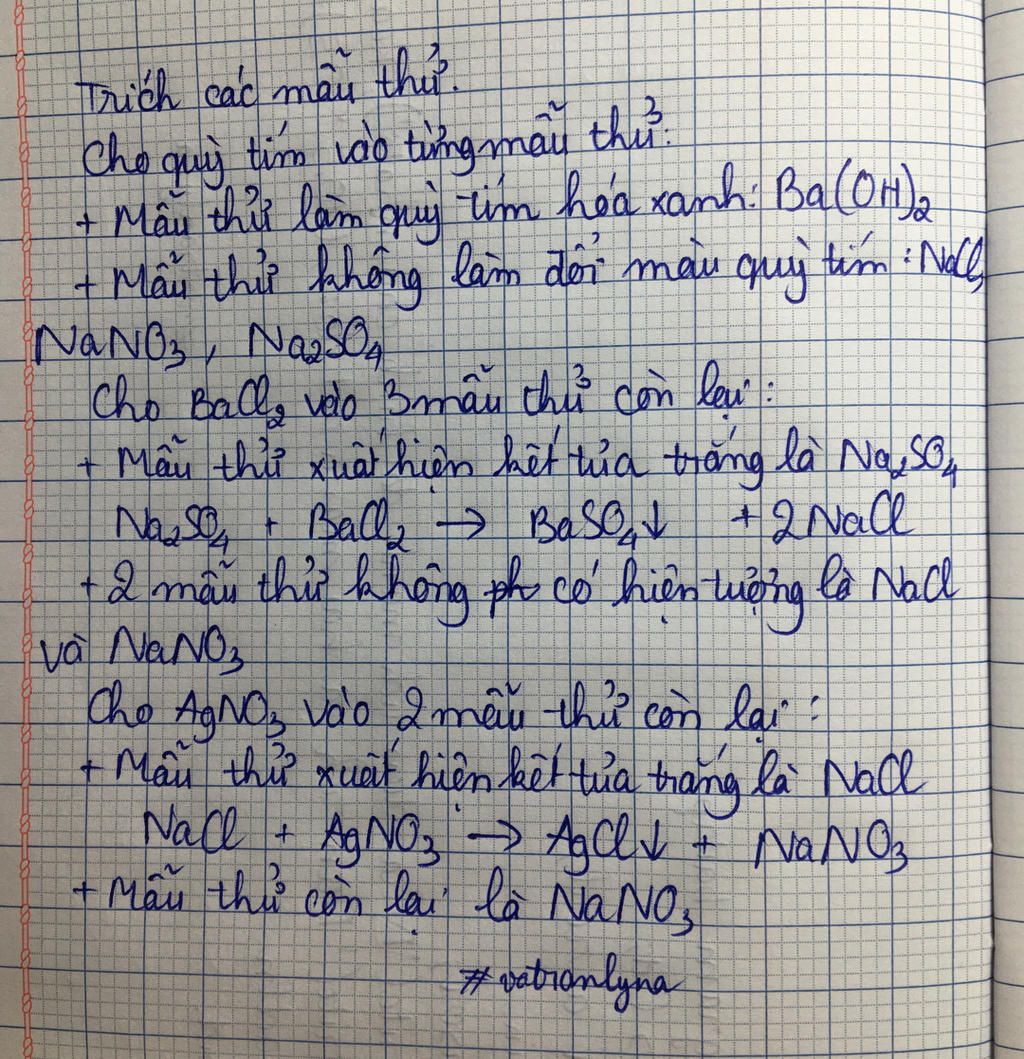 Trích các mẫu thử.
Cho quỳ tím vào từng mẫu thử:
+ Mẫu thử làm quỳ tím hóa xanh: Ba(OH)₂
+ Mẫu thử không làm đổi màu quỳ tím: NaCl,
NaNO₃, Na₂SO₄
Cho BaCl₂ vào 3 mẫu thử còn lại:
+ Mẫu thử xuất hiện kết tủa trắng là Na₂SO₄
Na₂SO₄ + BaCl₂ → BaSO₄↓ + 2NaCl
+ 2 mẫu thử không có hiện tượng là NaCl
và NaNO₃
Cho AgNO₃ vào 2 mẫu thử còn lại:
+ Mẫu thử xuất hiện kết tủa trắng là NaCl
NaCl + AgNO₃ → AgCl↓ + NaNO₃
+ Mẫu thử còn lại là NaNO₃
#vatronlyna